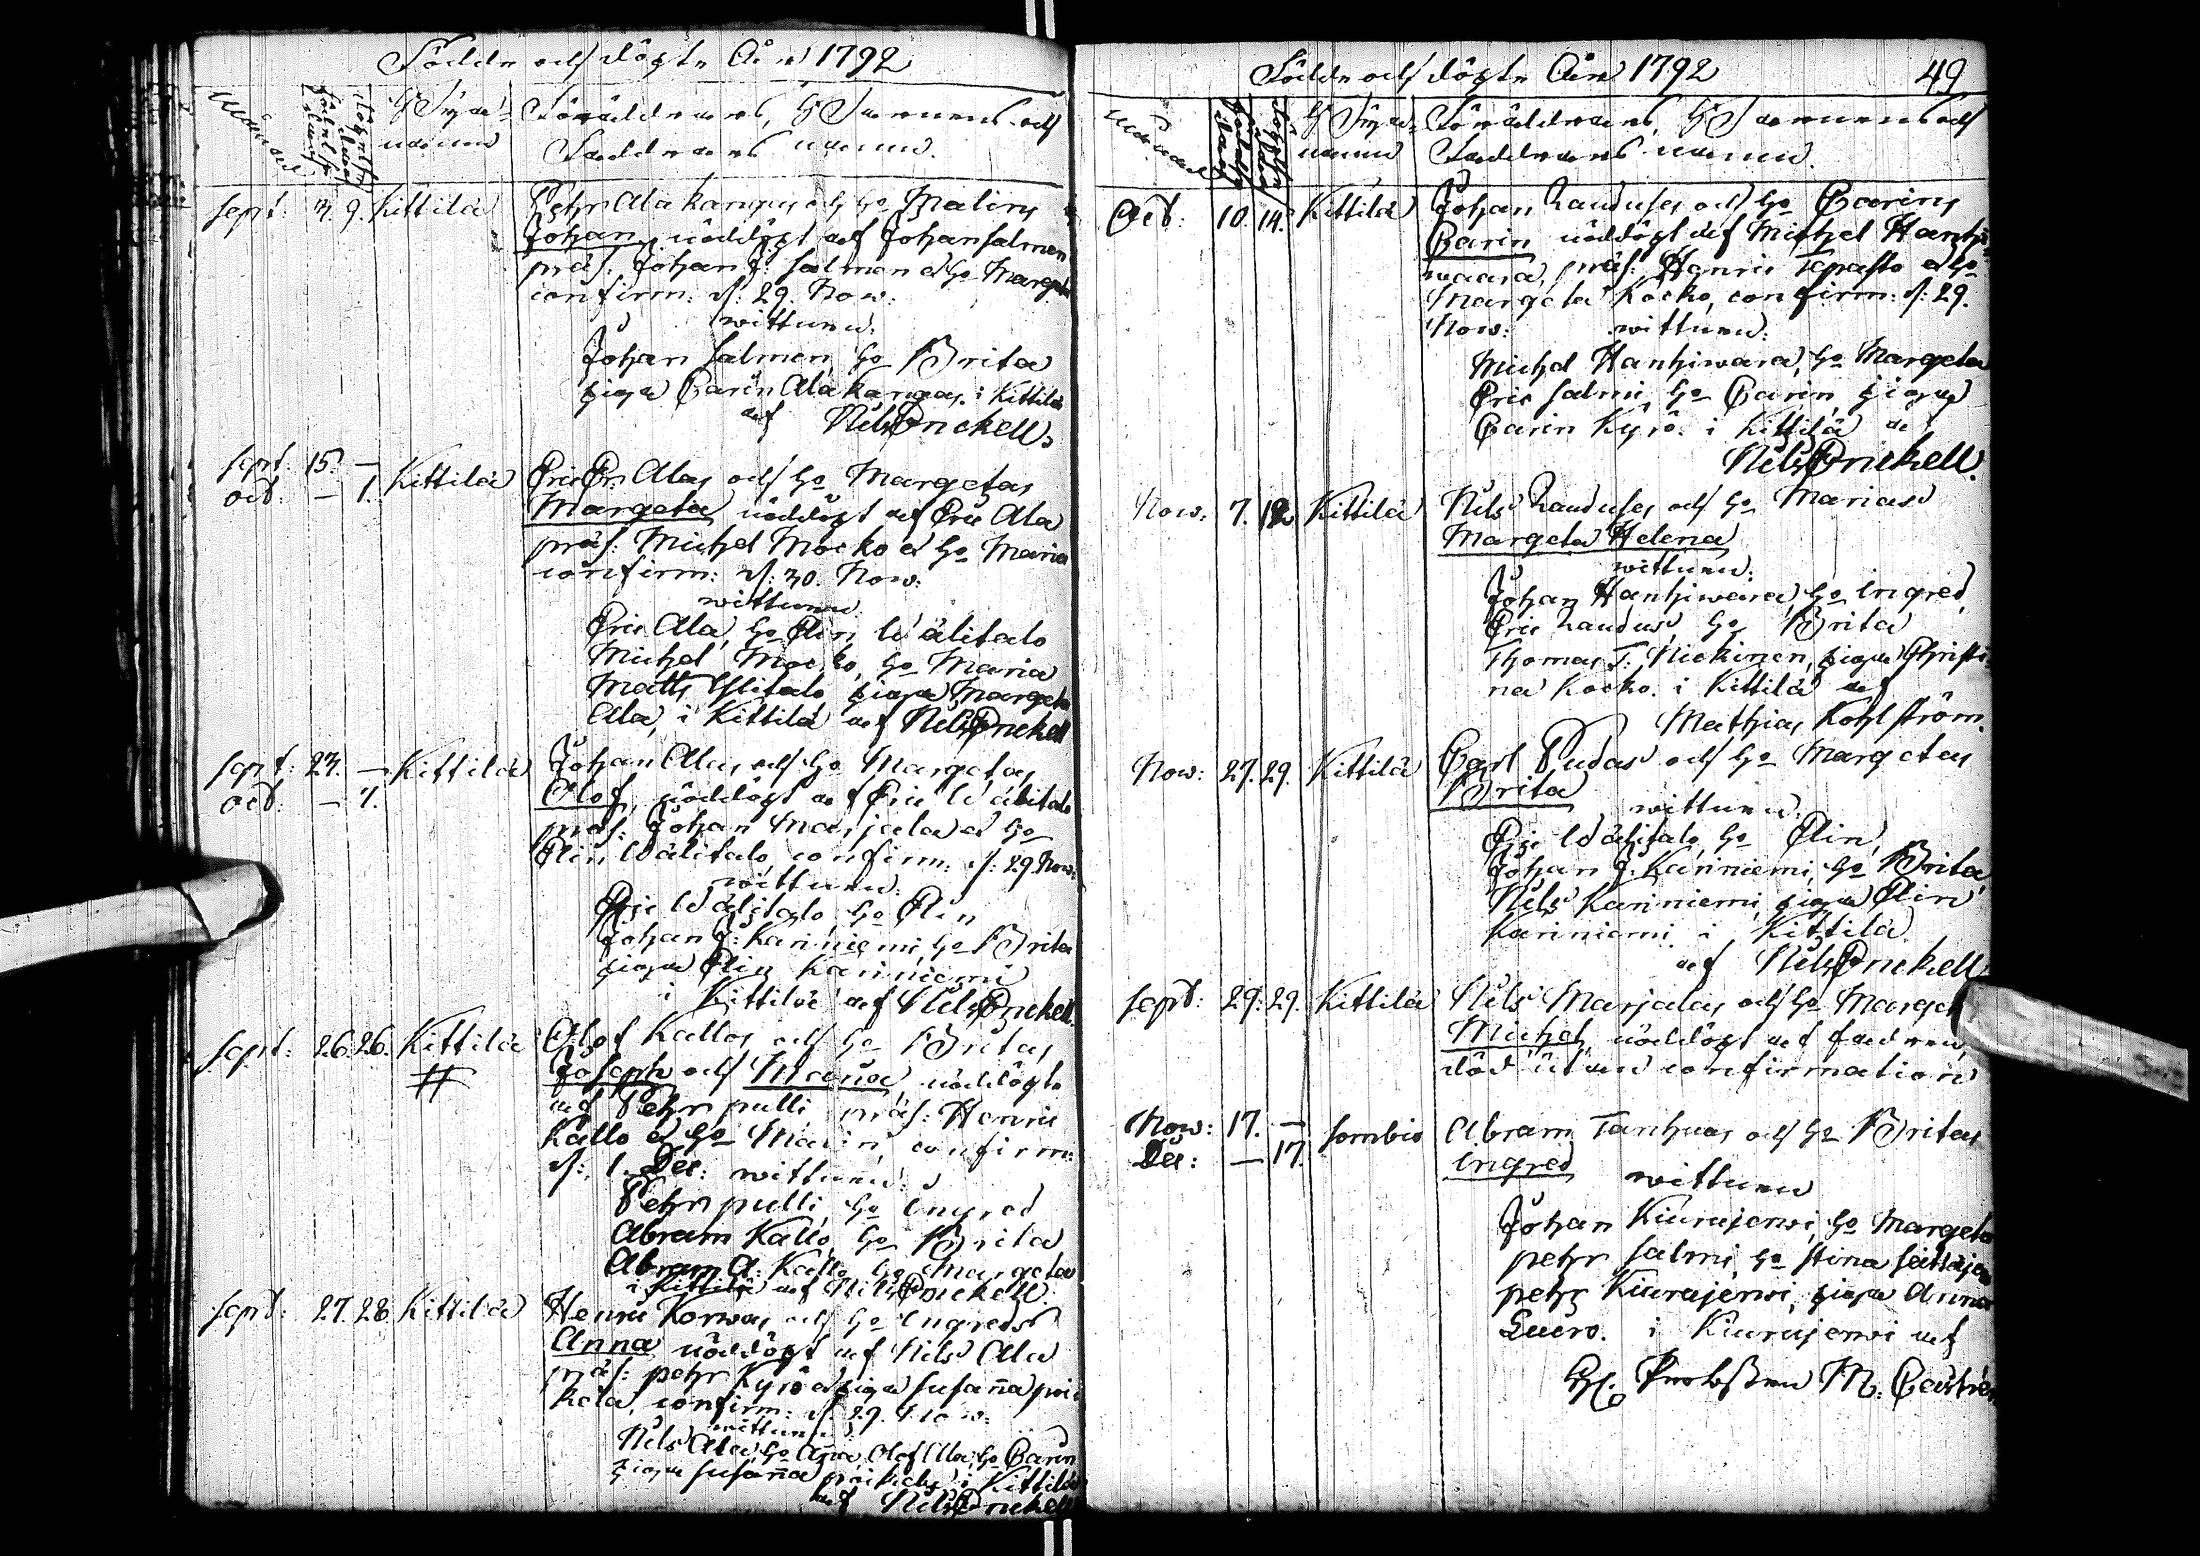 Födde och döpte Åhr 1792
Månad
födelse dag
döpelse dag
Byanamn
Föräldrars, Barnens och
Faddrars namn.
Sept: 3. 9. Kittilä Pehr Alakangas och h:o Malins
Johan nöddöpt af Johan Salmen
præs: Johan J: Salmen et h:o Margeta
confirm: d: 29. Now:
wittnen:
Johan Salmen, h:o Brita
piga Carin Alakangas, i Kittilä
af Nils Enckell.
Sept: 15. — Kittilä Eric Er: Alas och h:o Margetas
Oct: — 1.
Margeta nöddöpt af Eric Ala
præs: Michel Mocko et h:o Maria
confirm: d: 30. Now:
wittnen
Eric Ala, h:o Elin Wälitalo
Michel Mocko, h:o Maria
Matts Ylitalo piga Margeta
Ala, i Kittilä af Nils Enckell
Sept: 23. — Kittilä Johan Alas och h:o Margetas
Oct: — 7.
Olof, nöddöpt af Eric Wälitalo
præs: Johan Marjala et h:o
Elin Wälitalo, confirm: d: 29 Now:
wittnen:
Eric Wälitalo, h:o Elin
Johan J: Kariniemi, h:o Brita
piga Elin Kariniemi
i Kittilä af Nils Enckell.
Sept: 26. 26. Kittilä Olof Kallos och h:o Britas
Joseph och Maria nöddöpte
af Pehr Pulli præs: Henric
Kallo et h:o Marin, confirm:
d: 1. Dec: wittnen:
Pehr Pulli, h:o Ingred
Abram Kallo, h:o Brita
Abram A: Kallo, h:o Margeta
i Kittilä af Nils Enckell.
Sept: 27. 28. Kittilä Henric Korwas och h:o Ingreds
Anna nöddöpt af Nils Ala
præs: Pehr Kyrö et piga Susanna
confirm: d: 29. Now:
wittnen
Nils Ala, h:o Anna, Olof Ala, h:o Carin
piga Susanna i Kittilä
af Nils Enckell
Födde och döpte Åhr 1792 49
Månad
födelse dag
döpelse dag
Byanamn
Föräldrars, Barnens och
Faddrars namn.
Oct: 10. 14. Kittilä Johan Laudus och h:o Carins
Carin nöddöpt af Michel Hanhi-
waara, præs: Henric Sepasto et h:o
Margeta Kocko, confirm: d: 29.
Now: wittnen:
Michel Hanhiwara, h:o Margeta
Eric Salmi, h:o Carin, piga
Carin Kyrö. i Kittilä af
Nils Enckell.
Now: 7. 12 Kittilä Nils Laudus och h:o Marias
Margeta Helena
wittnen:
Johan Hanhiwara, h:o Ingred,
Eric Laudus h:o Brita
Thomas T: Nickinen, piga Christi-
na Kocko. i Kittilä af
Mathias Kohlström.
Now: 27. 29. Kittilä Carl Pudas och h:o Margetas
Brita wittnen:
Eric Wälitalo, h:o Elin,
Johan J. Kariniemi, h:o Brita
Nils Kariniemi, piga Elin
Kariniemi i Kittilä
af Nils Enckell
Sept: 29. 29. Kittilä Nils Marjalas och h:o Marget
Michel, nöddöpt af fadren,
död utan confirmation
Now: 17. — Sombio Abram Tanhuas och h:o Britas
Dec: — 17.
Ingred wittnen
Johan Kiurujerwi, h:o Margeta
Pehr Salmi, h:o Stina
Pehr Kiurujerwi, piga Anna
Luiro. i Kiurujerwi af
H: Probsten M: Castrén